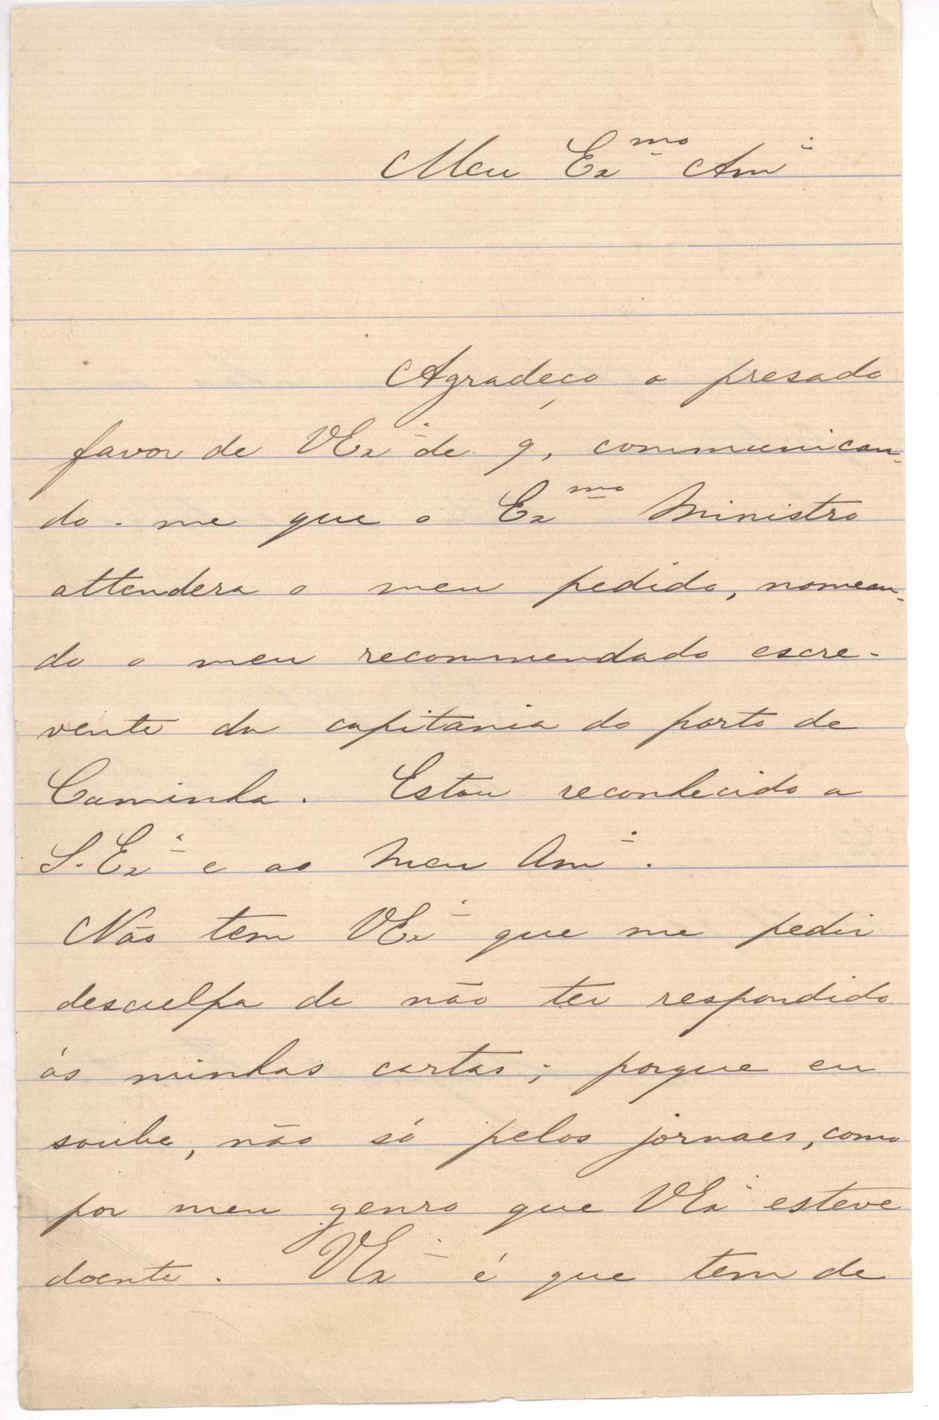 Meu Ex.mo Am.o
Agradeço o presado
favor de VEx.a de 9, communican-
do-me que o Ex.mo Ministro
attendera o meu pedido, nomean-
do o meu recommendado escre-
vente da capitania do porto de
Caminha. Estou reconhecido a
S. Ex.a e ao meu Am.o.
Não tem VEx.a que me pedir
desculpa de não ter respondido
ás minhas cartas; porque eu
soube, não só pelos jornaes, como
por meu genro que VEx.a esteve
doente. VEx.a é que tem de